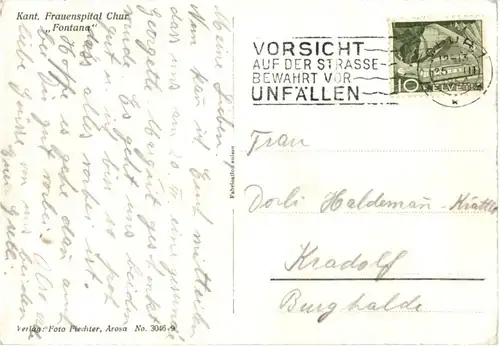 Kant. Frauenspital Chur
„Fontana"
Meine Lieben!
Nun kan ich Euch mitteilen
dass uns am 20. II eine gesunde
Georgette Margrit geschenkt
wurde. Es geht uns beiden
gut u. bin so froh
dass alles vorbei ist.
Hoffe es gehe dan auch
gut vorbei. Also alles
liebe Grüsse von uns beiden
Eure
Verlag: Foto Flechter, Arosa No. 3046-9
VORSICHT
AUF DER STRASSE
BEWAHRT VOR
UNFÄLLEN
10
HELVETIA
Frau
Dorli Haldemañ-Krattli
Kradolf
Burghalde